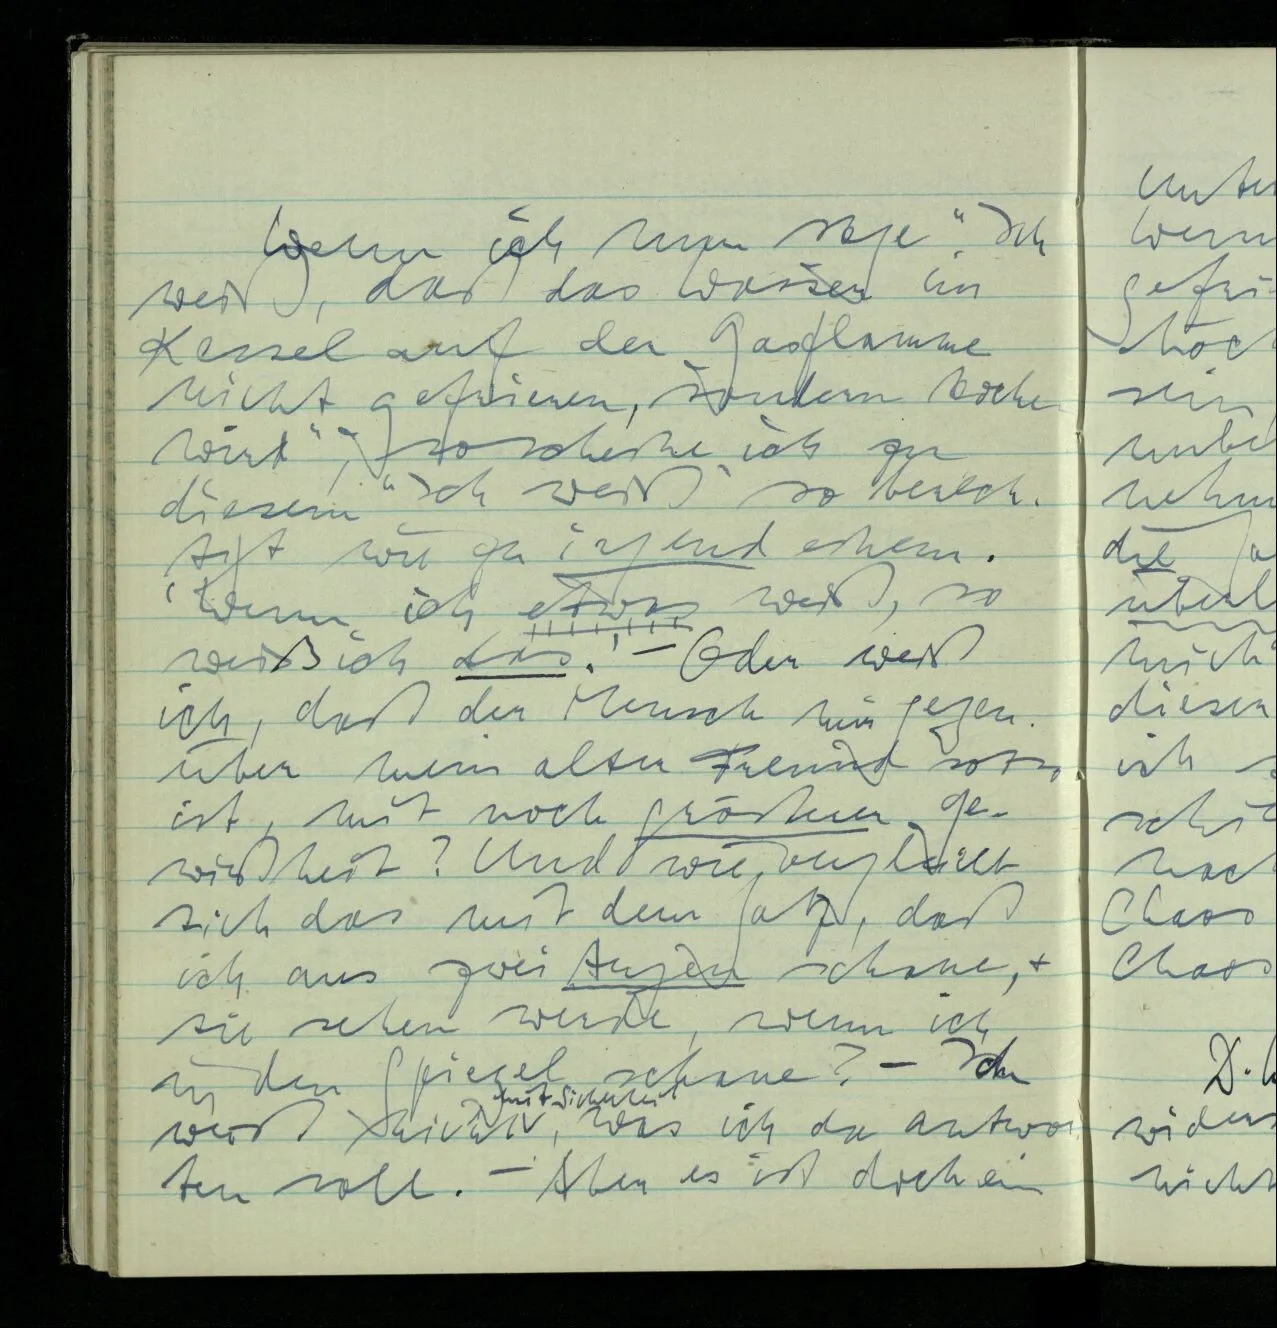 Wenn ich nun sage "Ich
weiß, daß das Wasser im
Kessel auf der Gasflamme
nicht gefrieren, sondern kochen
wird", so scheine ich zu
diesem "Ich weiß" so berech-
tigt wie zu irgend einem.
'Wenn ich etwas weiß, so
weiß ich das.' – Oder weiß
ich, daß der Mensch mir gegen-
über mein alter Freund soundso
ist, mit noch größerer Ge-
wißheit? Und wie vergleicht
sich das mit dem Satz, daß
ich aus zwei Augen schaue, +
sie sehen werde, wenn ich
in den Spiegel schaue? – Ich
weiß nicht mit Sicherheit, was ich da antwor-
ten soll. – Aber es ist doch ein
Unter
Wenn
gefri
höc
sein
unbe
nehm
die
überl
mich
diesen
ich s
schi
noch
Chaos
Chaos
widers
nicht